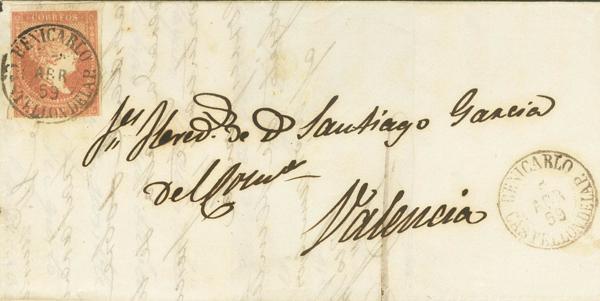 CORREOS
BENICARLO
ABR
59
CASTELLON DE LA P.
Sres Hered.s de Dn Santiago Garcia
del Como
Valencia
BENICARLO
ABR
59
CASTELLON DE LA P.